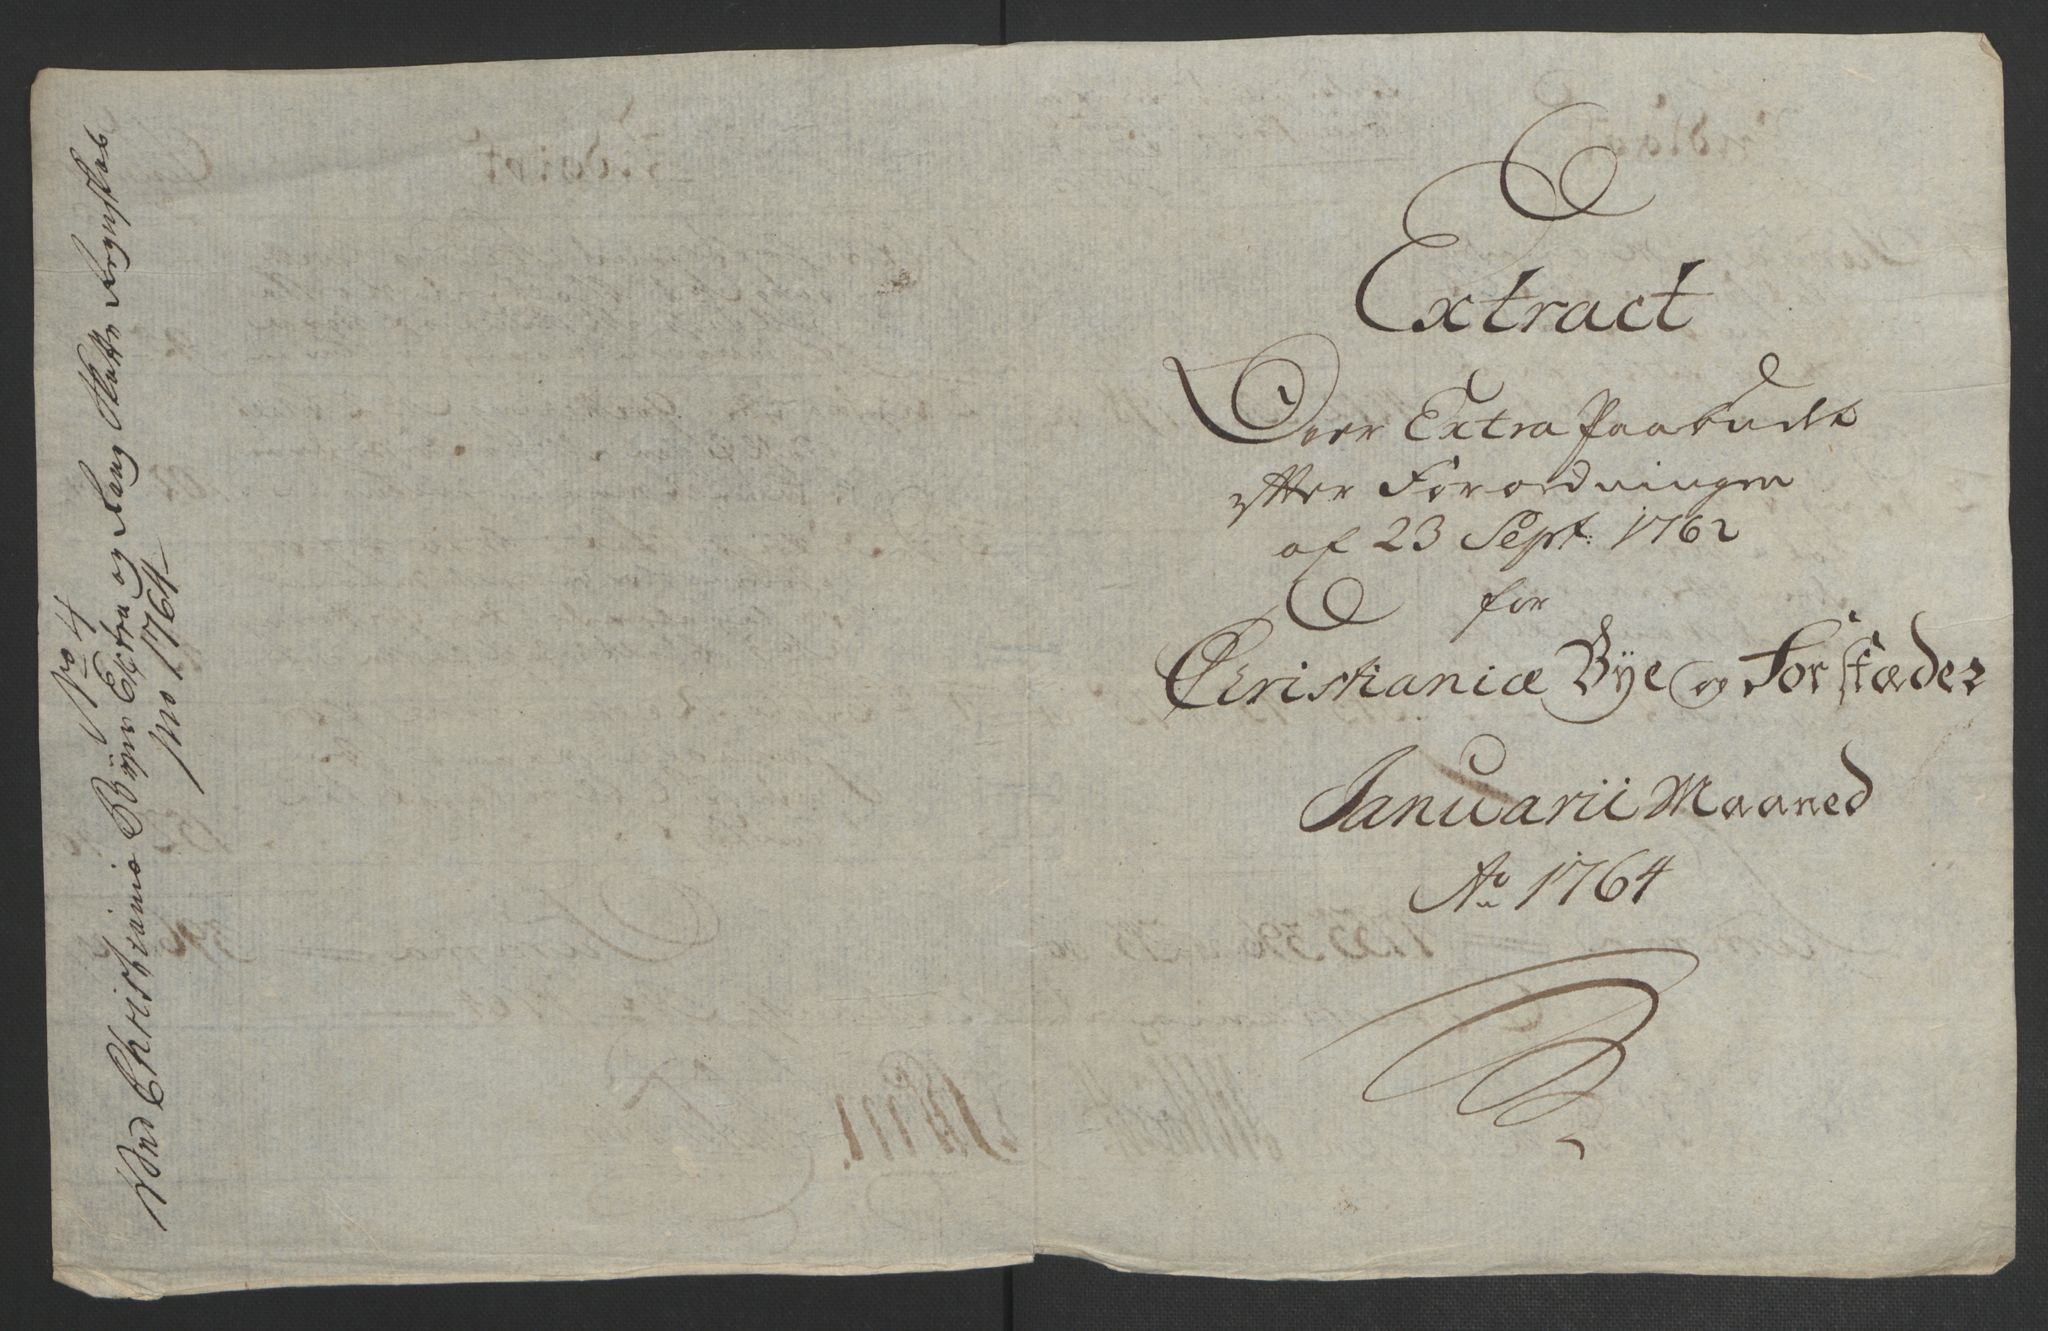 No 4
Ved Christiania Byes Extra og Rang Skatts Regnskab
pro 1764
Extract
Over Extra Paabudet
efter Forordningen
af 23 Sept: 1762
for
Christianiæ Bye og Forstæder
Januarii Maaned
Ao 1764